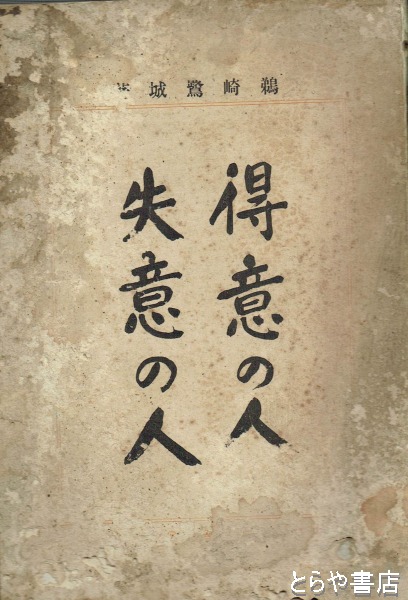 鵜崎鷺城
得意の人
失意の人
© とらや書店